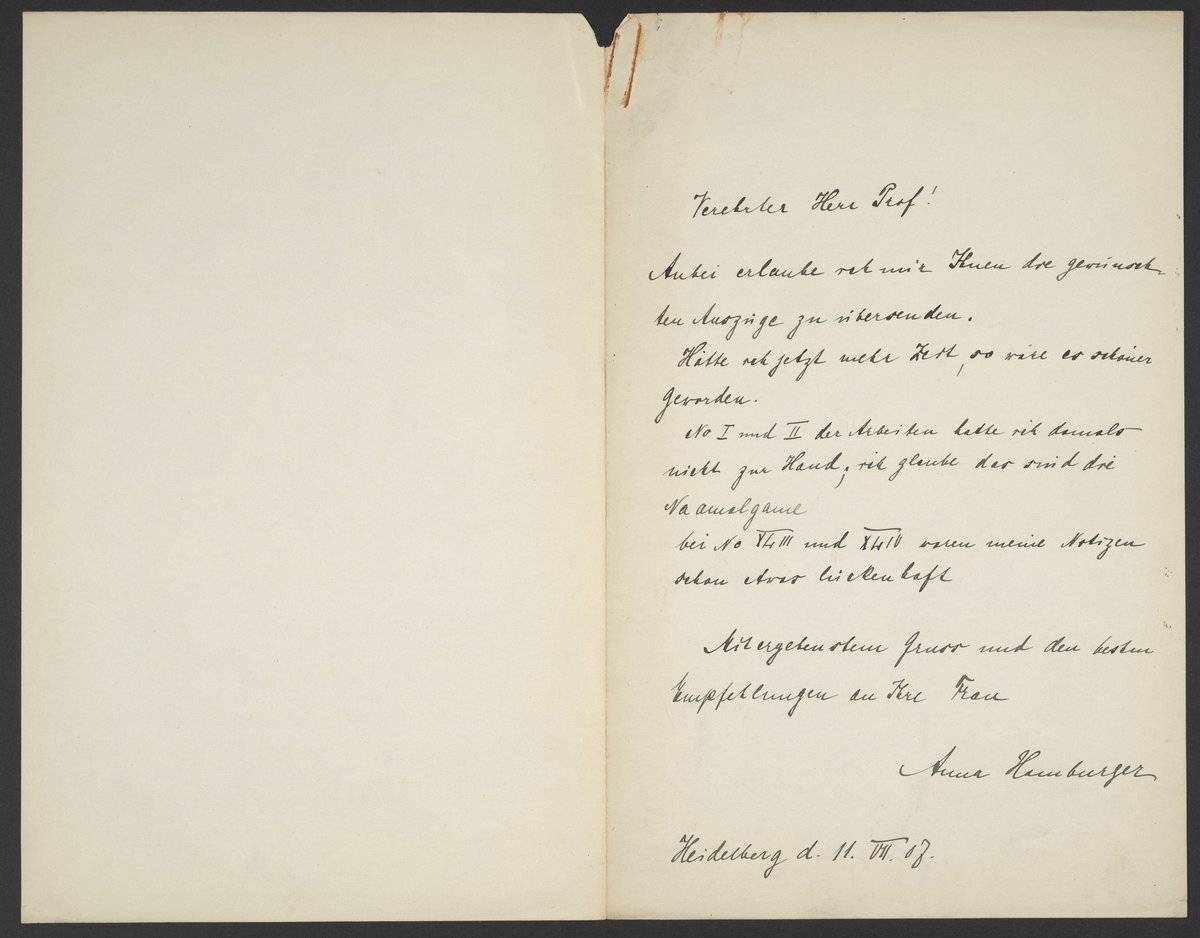 Verehrter Herr Prof!
Anbei erlaube ich mir Ihnen die gewünsch-
ten Auszüge zu übersenden.
Hätte ich jetzt mehr Zeit, so wäre es schöner
geworden.
No I und II der Arbeiten hatte ich damals
nicht zur Hand; ich glaube das sind die
Na amalgame
bei No XLIII und XLIV waren meine Notizen
schon etwas lückenhaft
Mit ergebenstem Gruss und den besten
Empfehlungen an Ihre Frau
Anna Hamburger
Heidelberg d. 11. VII. 07.